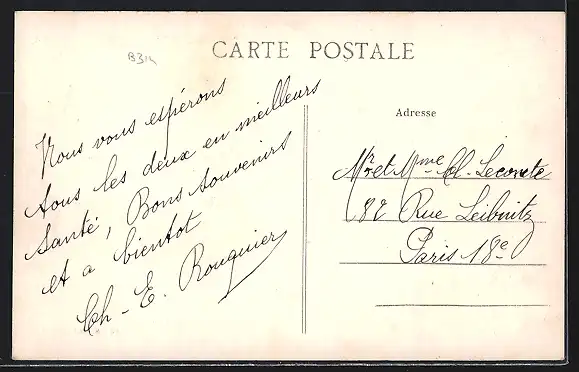 B314
CARTE POSTALE
Nous vous espérons
tous les deux en meilleurs
Santé, Bons souvenirs
et a bientot
Ch - E. Rouquier
Adresse
Mr et Mme Lecomte
82 Rue Leibnitz
Paris 18e